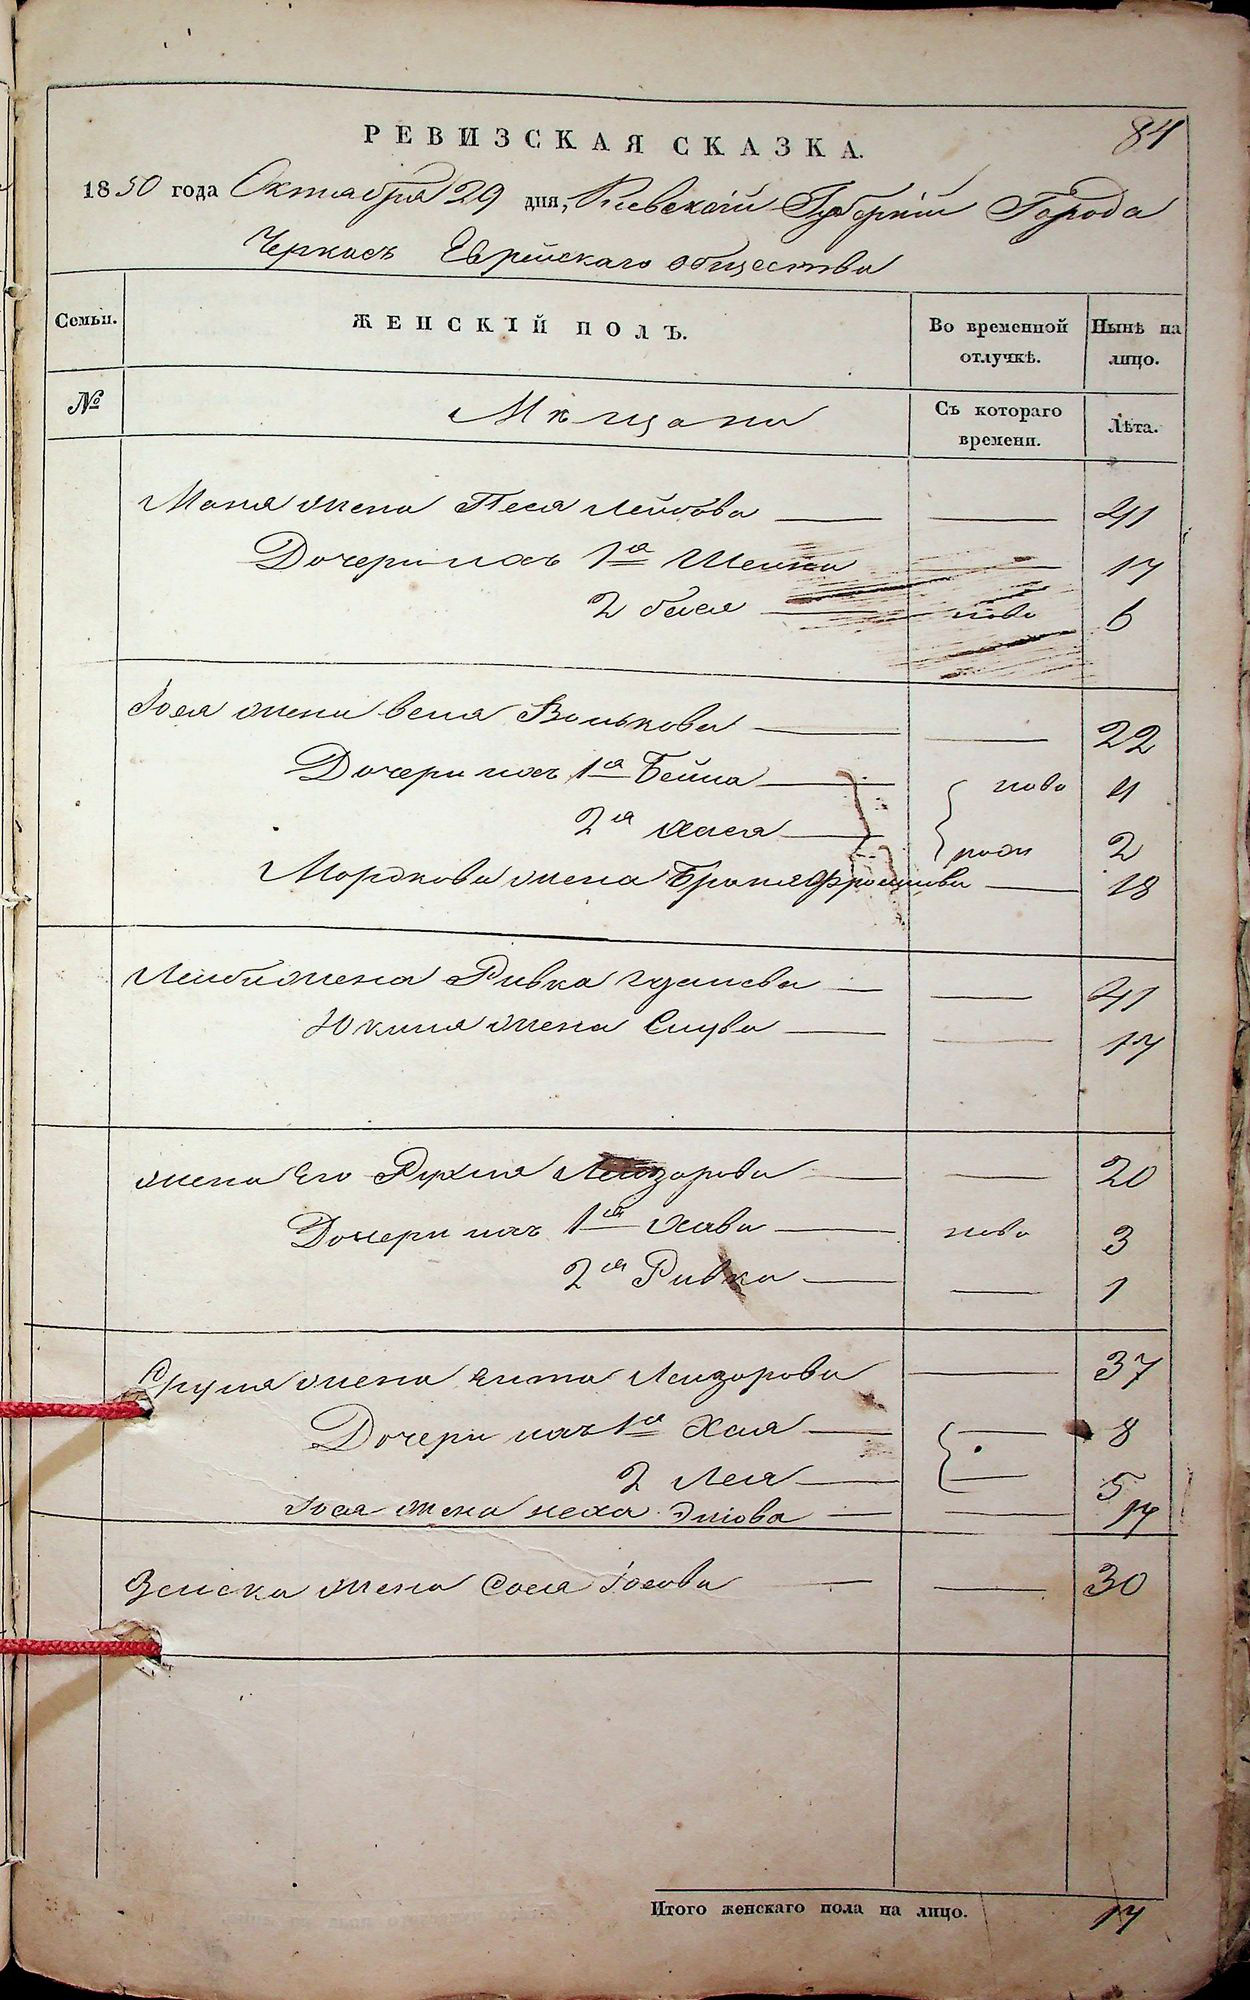 84
РЕВИЗСКАЯ СКАЗКА.
1850 года Октября 29 дня, Киевской Губернии Города
Черкасъ Еврейскаго общества
Семьи. ЖЕНСКІЙ ПОЛЪ. Во временной отлучкѣ. Нынѣ на лицо.
№ Мѣщане Съ котораго времени. Лѣта.
жена Песя Лейбова — — 41
Дочери ихъ 1я — 17
2 бася — ново 6
Iося жена Волькова — — 22
Дочери ихъ 1я Бейла — ново 4
2я хася — рож 2
Мордкова жена Браня — 18
Лейби жена Ривка — — 41
жена — — 17
жена Его Рухля Лейзорова — — 20
Дочери ихъ 1я хава — ново 3
2я Ривка — — 1
Сруля жена Ента Лейзорова — 37
Дочери ихъ 1я Хая — — 8
2 Лея — — 5
Iося жена неха — — 17
жена Сося Iосова — — 30
Итого женскаго пола на лицо. 17